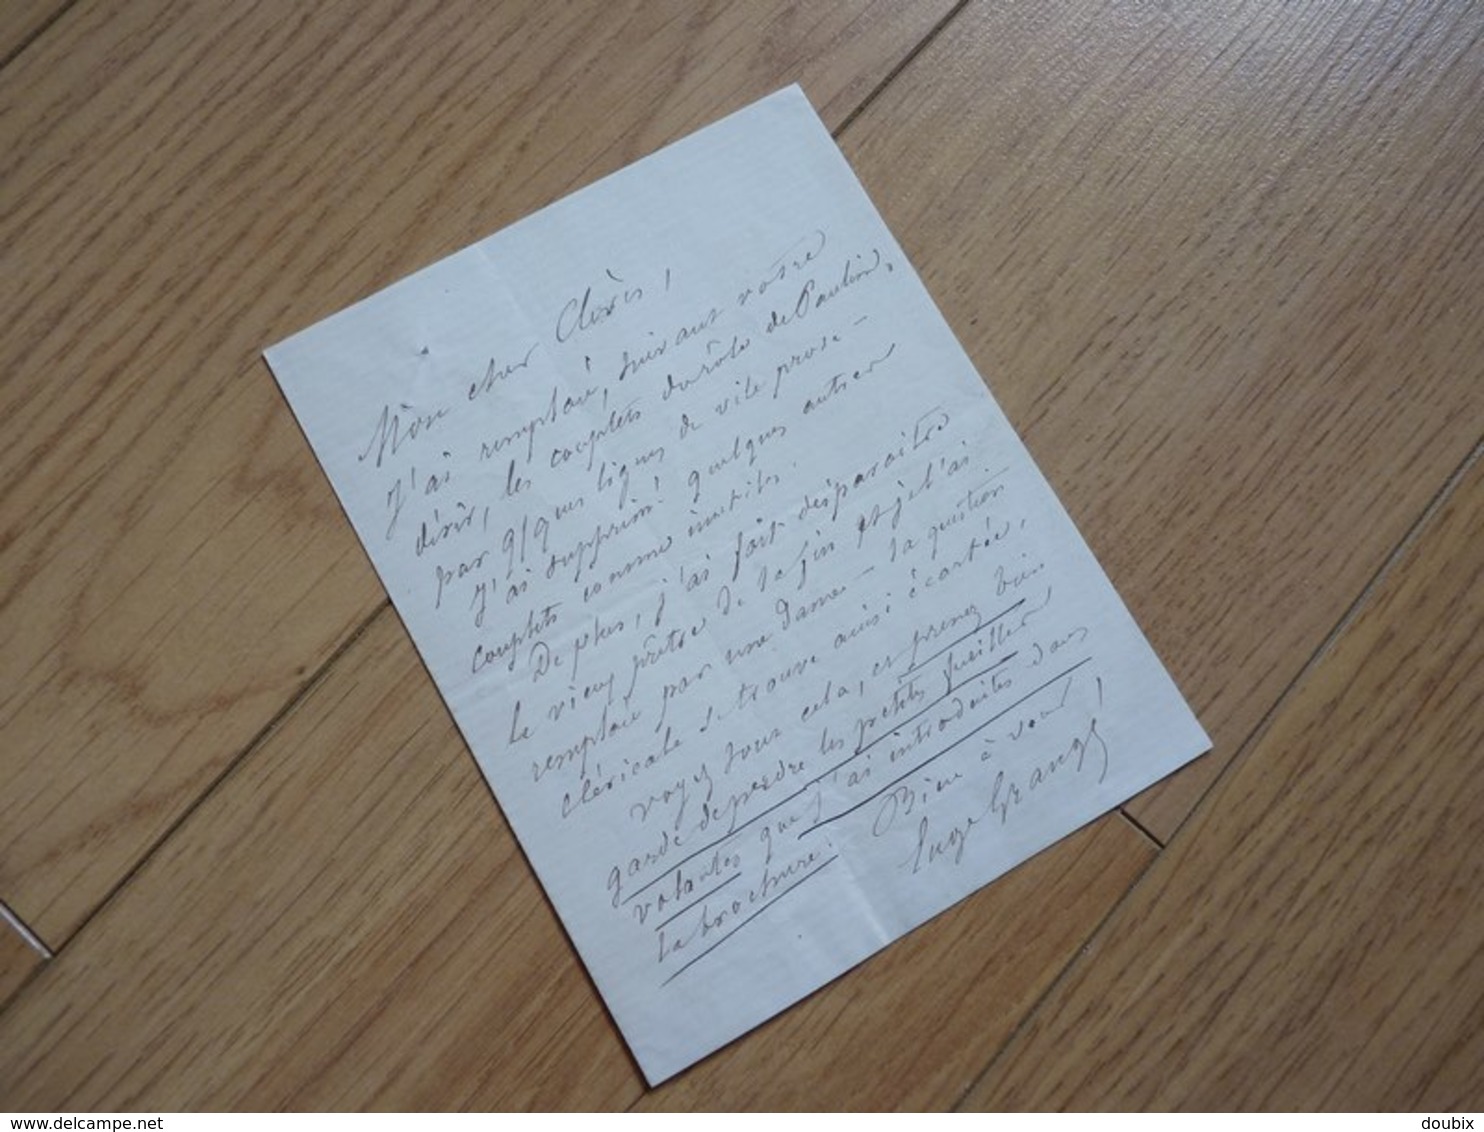 Mon cher Clèvis,
J'ai remplacé, suivant votre
désir, les couplets du rôle de Paulin,
par q/ques lignes de vile prose –
J'ai supprimé quelques autres
couplets comme inutiles.
De plus, j'ai fait disparaître
le vieux prêtre de la fin et je l'ai
remplacé par une dame – la question
cléricale se trouve ainsi écartée.
Voyez tout cela, et prenez bien
garde de perdre les petits feuillets
volantes que j'ai introduites dans
la brochure.
Bien à vous,
Eug. Grangé
delcampe.net
doubix